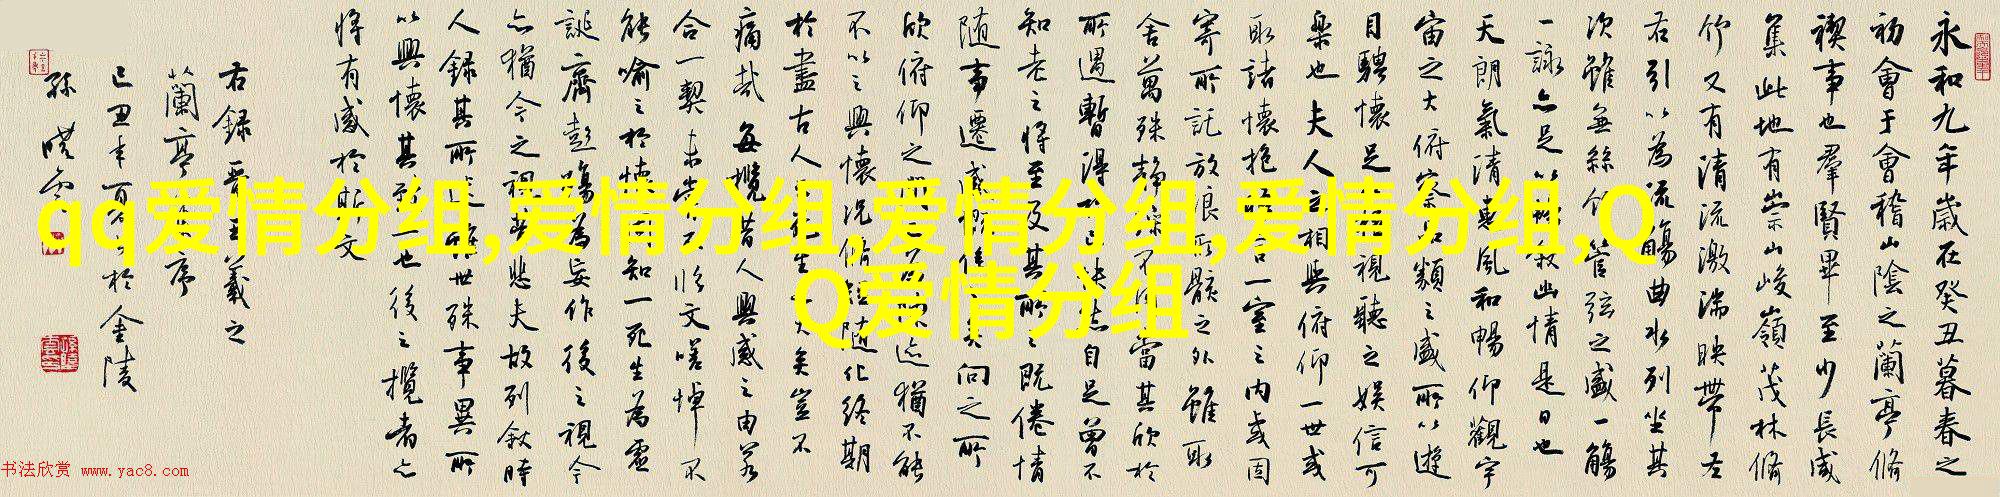 永和九年歲在癸丑暮春之
初會于會稽山陰之蘭亭脩
禊事也羣賢畢至少長咸
集此地有崇山峻嶺茂林脩
竹又有清流激湍映帶左
右引以為流觴曲水列坐其
次雖無絲竹管弦之盛一觴
一詠亦足以暢叙幽情是日也
天朗氣清惠風和暢仰觀宇
宙之大俯察品類之盛所以遊
目騁懷足以極視聽之娛信可
樂也夫人之相與俯仰一世或
取諸懷抱悟言一室之內或因
寄所託放浪形骸之外雖取
舍萬殊靜躁不同當其欣於
所遇暫得於己快然自足曾不
知老之將至及其所之既倦情
隨事遷感慨係之矣向之所
欣俯仰之間已為陳迹猶不能
不以之興懷況脩短隨化終期
於盡古人云死生亦大矣豈不
痛哉每攬昔人興感之由若
合一契未嘗不臨文嗟悼不
能喻之於懷固知一死生為虛
誕齊彭殤為妄作後之視今
亦猶今之視昔悲夫故列叙時
人録其所述雖世殊事異所
以興懷其致一也後之攬者亦
將有感於斯文
右録晉王羲之
蘭亭序
己丑年於金陵
孫曉雲
qq爱情分组,爱情分组,爱情分组,爱情分组,Q
Q爱情分组
书法欣赏 www.yac8.com